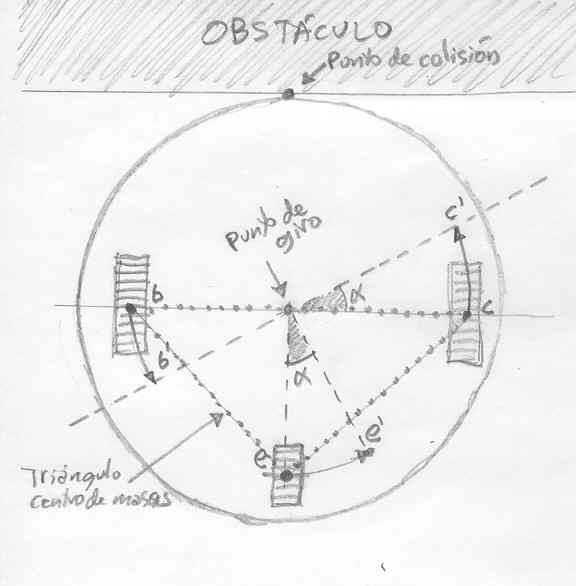 OBSTÁCULO
Punto de colisión
Punto de
giro
c'
b
α
c
b'
α
e'
e
Triángulo
centro de masas